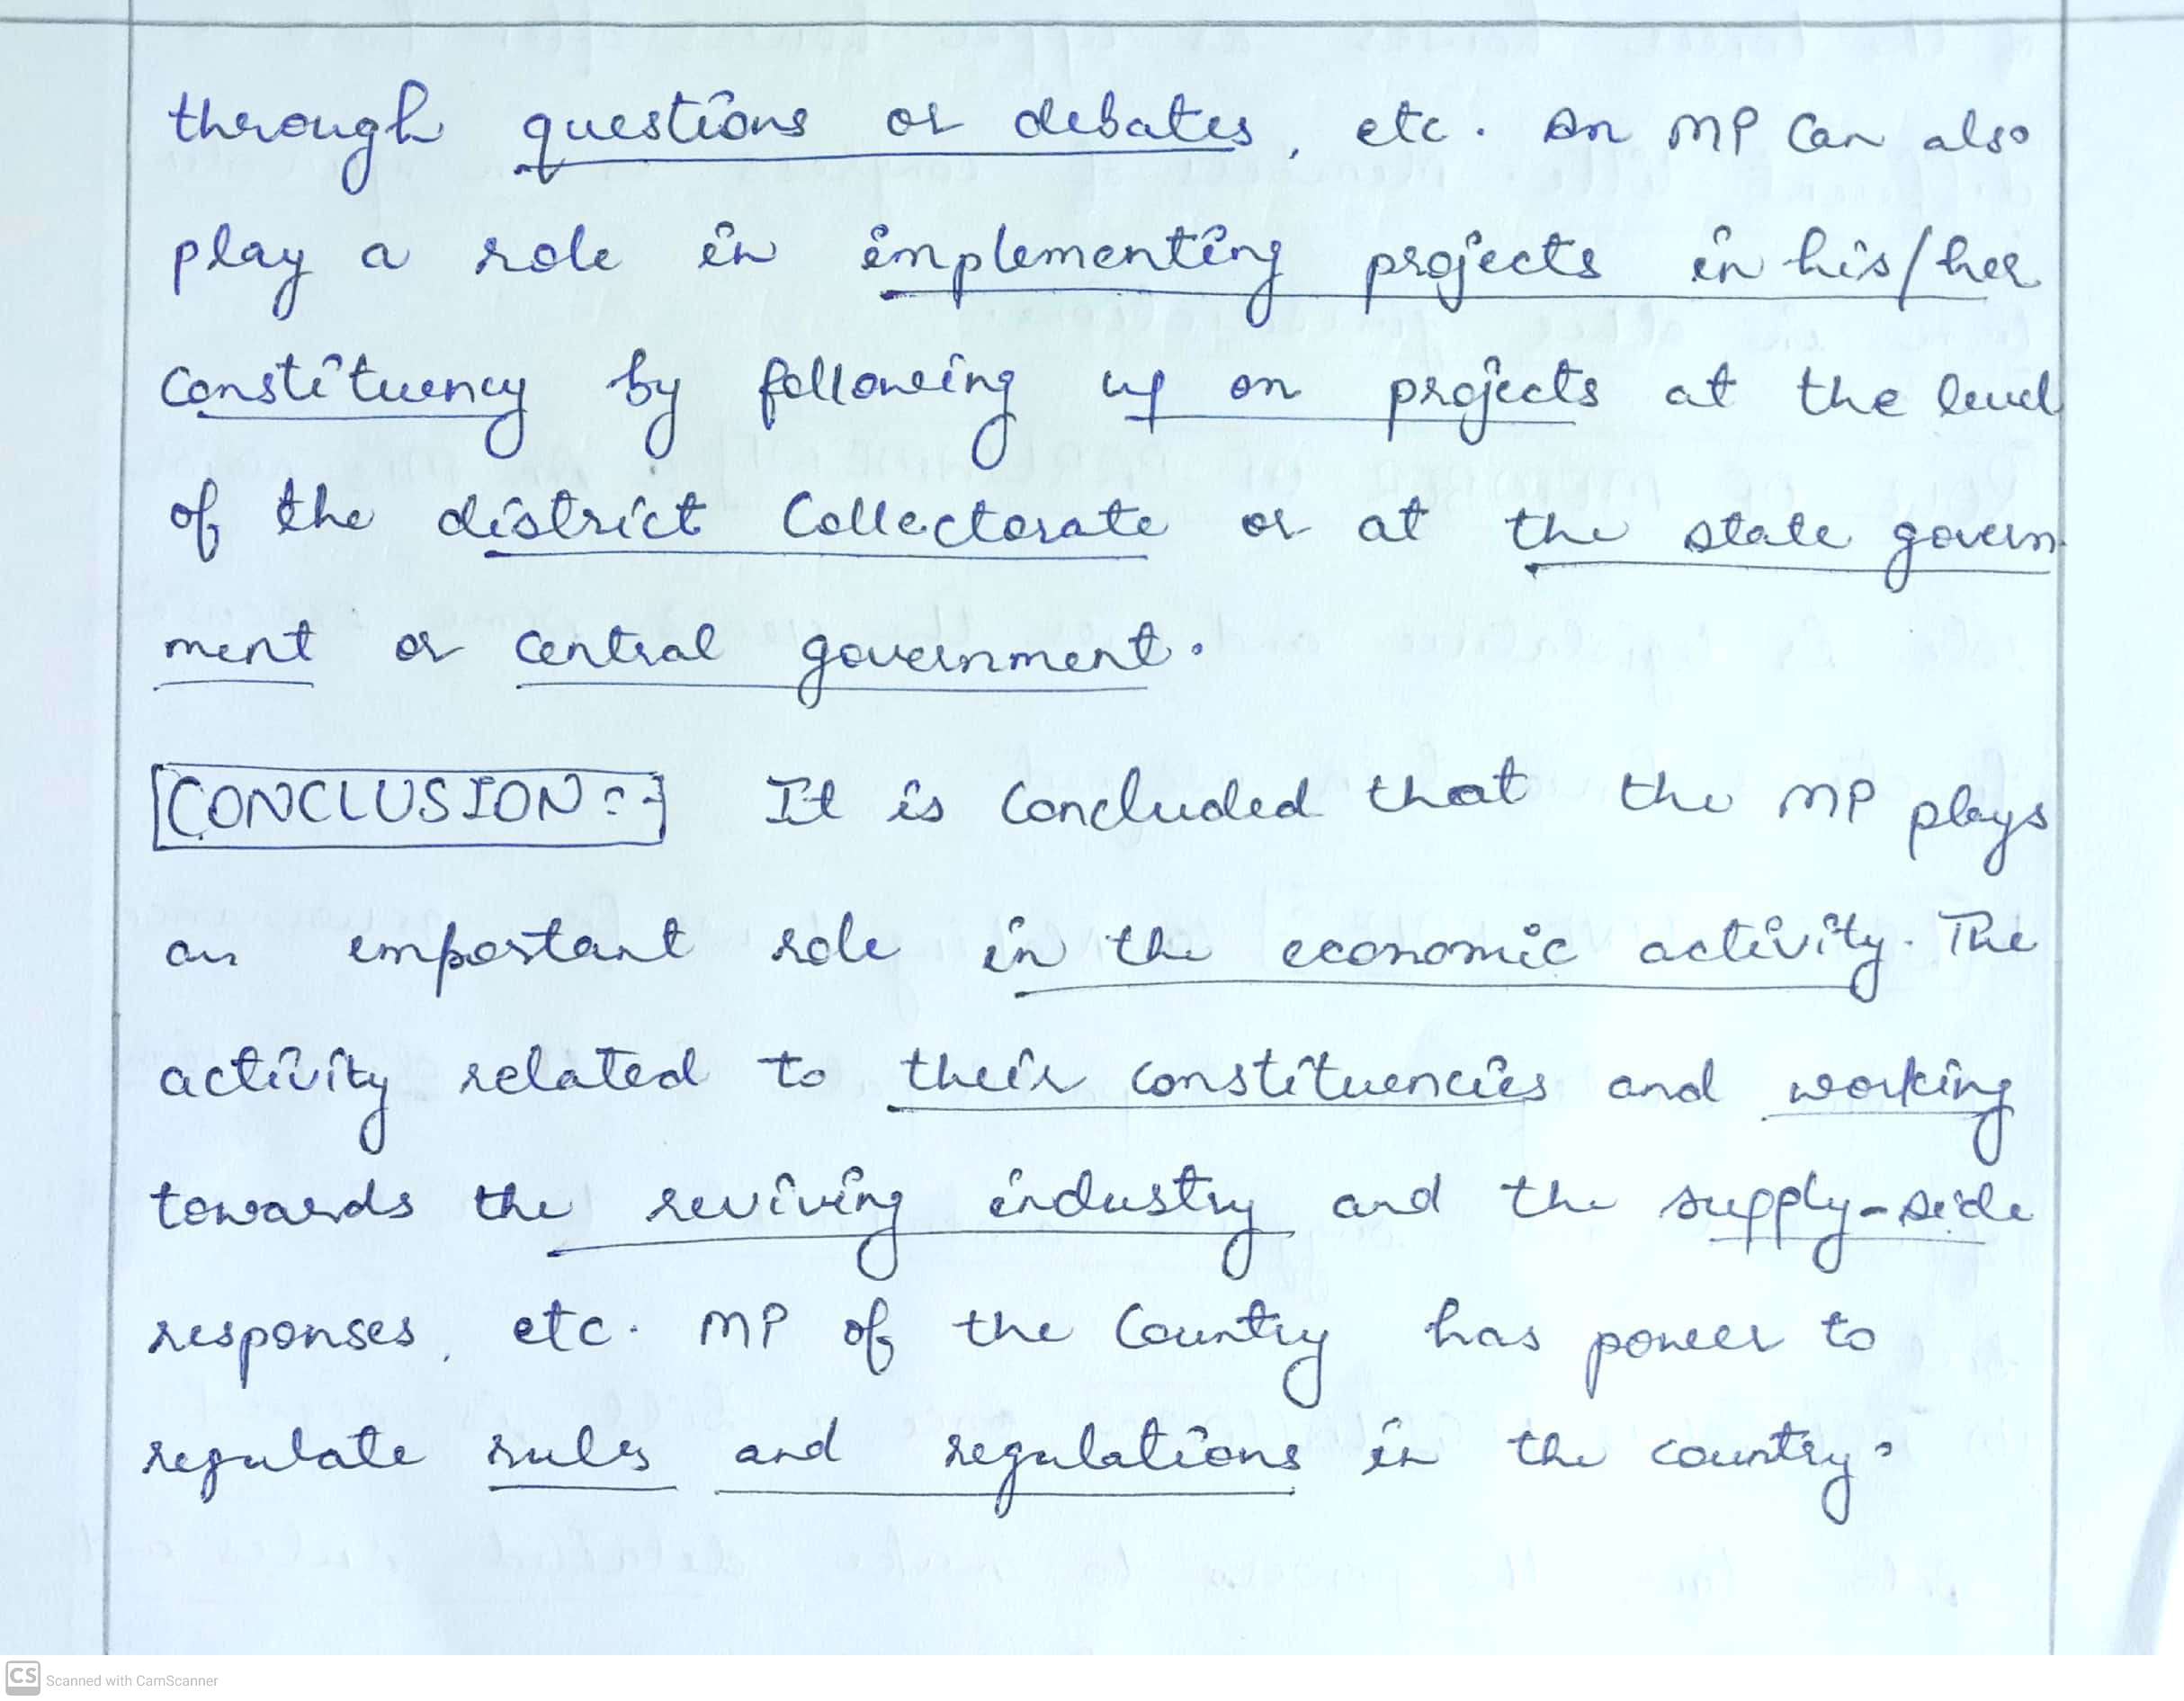 through questions or debates, etc. An MP Can also
play a role in implementing projects in his/her
Constituency by following up on projects at the level
of the district Collectorate or at the state govern
ment or central government.
[CONCLUSION:-] It is Concluded that the MP plays
an important role in the economic activity. The
activity related to their constituencies and working
towards the reviving industry and the supply-side
responses, etc. MP of the Country has power to
regulate rules and regulations in the country.
CS Scanned with CamScanner